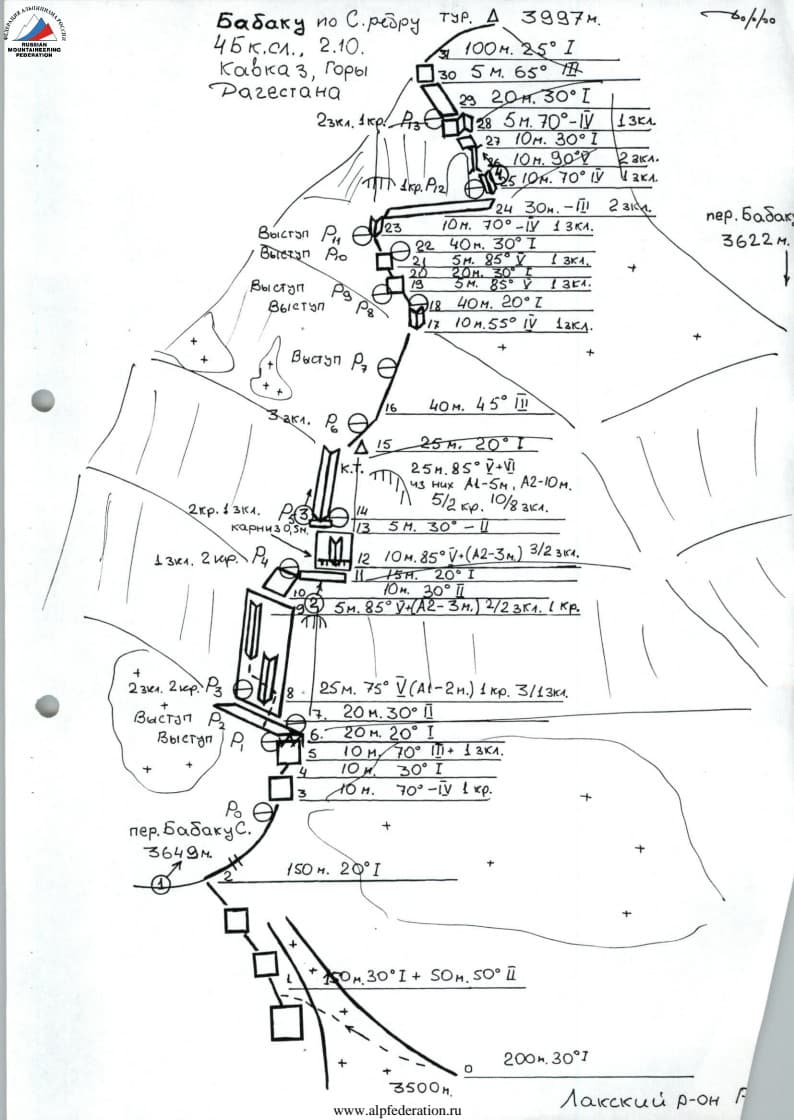 ФЕДЕРАЦИЯ АЛЬПИНИЗМА РОССИИ
RUSSIAN
MOUNTAINEERING
FEDERATION
Бабаку по С. ребру
4Б к.сл., 2.10.
Кавказ, Горы
Дагестана
тур. Δ 3997м.
31 100м. 25° I
30 5м. 65° III
29 20м. 30° I
2зкл. 1кр. P13
28 5м. 70° -IV 1зкл.
27 10м. 30° I
26 10м. 90° V 2зкл.
1кр. P12
25 10м. 70° IV 1зкл.
24 30м. -III 2зкл.
пер. Бабаку
3622м.
23 10м. 70° -IV 1зкл.
Выступ P11
22 40м. 30° I
Выступ P10
21 5м. 85° V 1зкл.
20 20м. 30° I
19 5м. 85° V 1зкл.
Выступ P9
18 40м. 20° I
Выступ P8
17 10м. 55° IV 1зкл.
Выступ P7
16 40м. 45° III
3зкл. P6
15 25м. 20° I
к.т.
25м. 85° V+VI
из них A1-5м, A2-10м.
5/2 кр. 10/8 зкл.
2кр. 1зкл. P5 3 14
карниз 0,5м.
13 5м. 30° -II
12 10м. 85° V+(A2-3м.) 3/2 зкл.
1зкл. 2кр. P4
11 15м. 20° I
10 10м. 30° II
9 2 5м. 85° V+(A2-3м.) 2/2 зкл. 1 кр.
2зкл. 2кр. P3
8 25м. 75° V (A1-2м.) 1кр. 3/1зкл.
7. 20м. 30° II
Выступ P2
6. 20м. 20° I
Выступ P1
5 10м. 70° III+ 1зкл.
4 10м. 30° I
3 10м. 70° -IV 1кр.
P0
пер. Бабаку С.
3649м.
1
2 150м. 20° I
1 150м. 30° I + 50м. 50° II
0 200м. 30° I
3500м.
Лакский р-он
www.alpfederation.ru